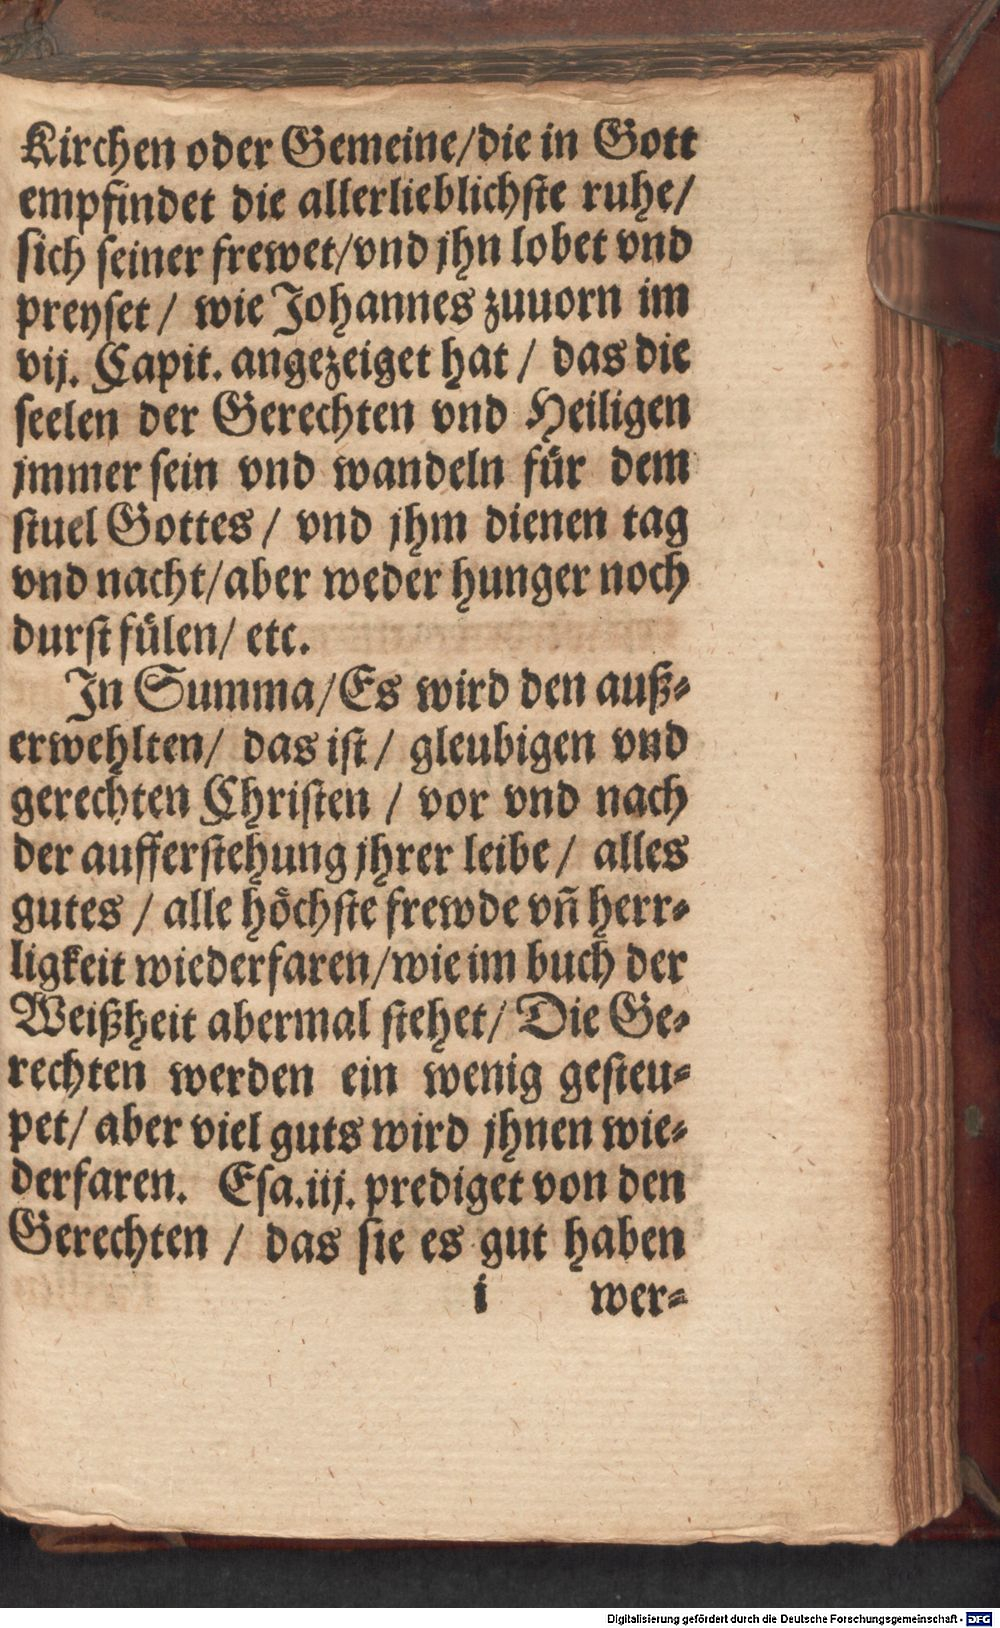 Kirchen oder Gemeine/die in Gott
empfindet die allerlieblichste ruhe/
sich seiner frewet/vnd jhn lobet vnd
preyset / wie Johannes zuuorn im
vij. Capit. angezeiget hat / das die
seelen der Gerechten vnd Heiligen
jmmer sein vnd wandeln für dem
stuel Gottes / vnd jhm dienen tag
vnd nacht/aber weder hunger noch
durst fülen/ etc.
In Summa/Es wird den auß-
erwehlten/ das ist / gleubigen vnd
gerechten Christen / vor vnd nach
der aufferstehung jhrer leibe / alles
gutes / alle höchste frewde vñ herr-
ligkeit wiederfaren/wie im buch der
Weißheit abermal stehet/ Die Ge-
rechten werden ein wenig gesteu-
pet/ aber viel guts wird jhnen wie-
derfaren. Esa.iij. prediget von den
Gerechten / das sie es gut haben
i wer-
Digitalisierung gefördert durch die Deutsche Forschungsgemeinschaft - DFG